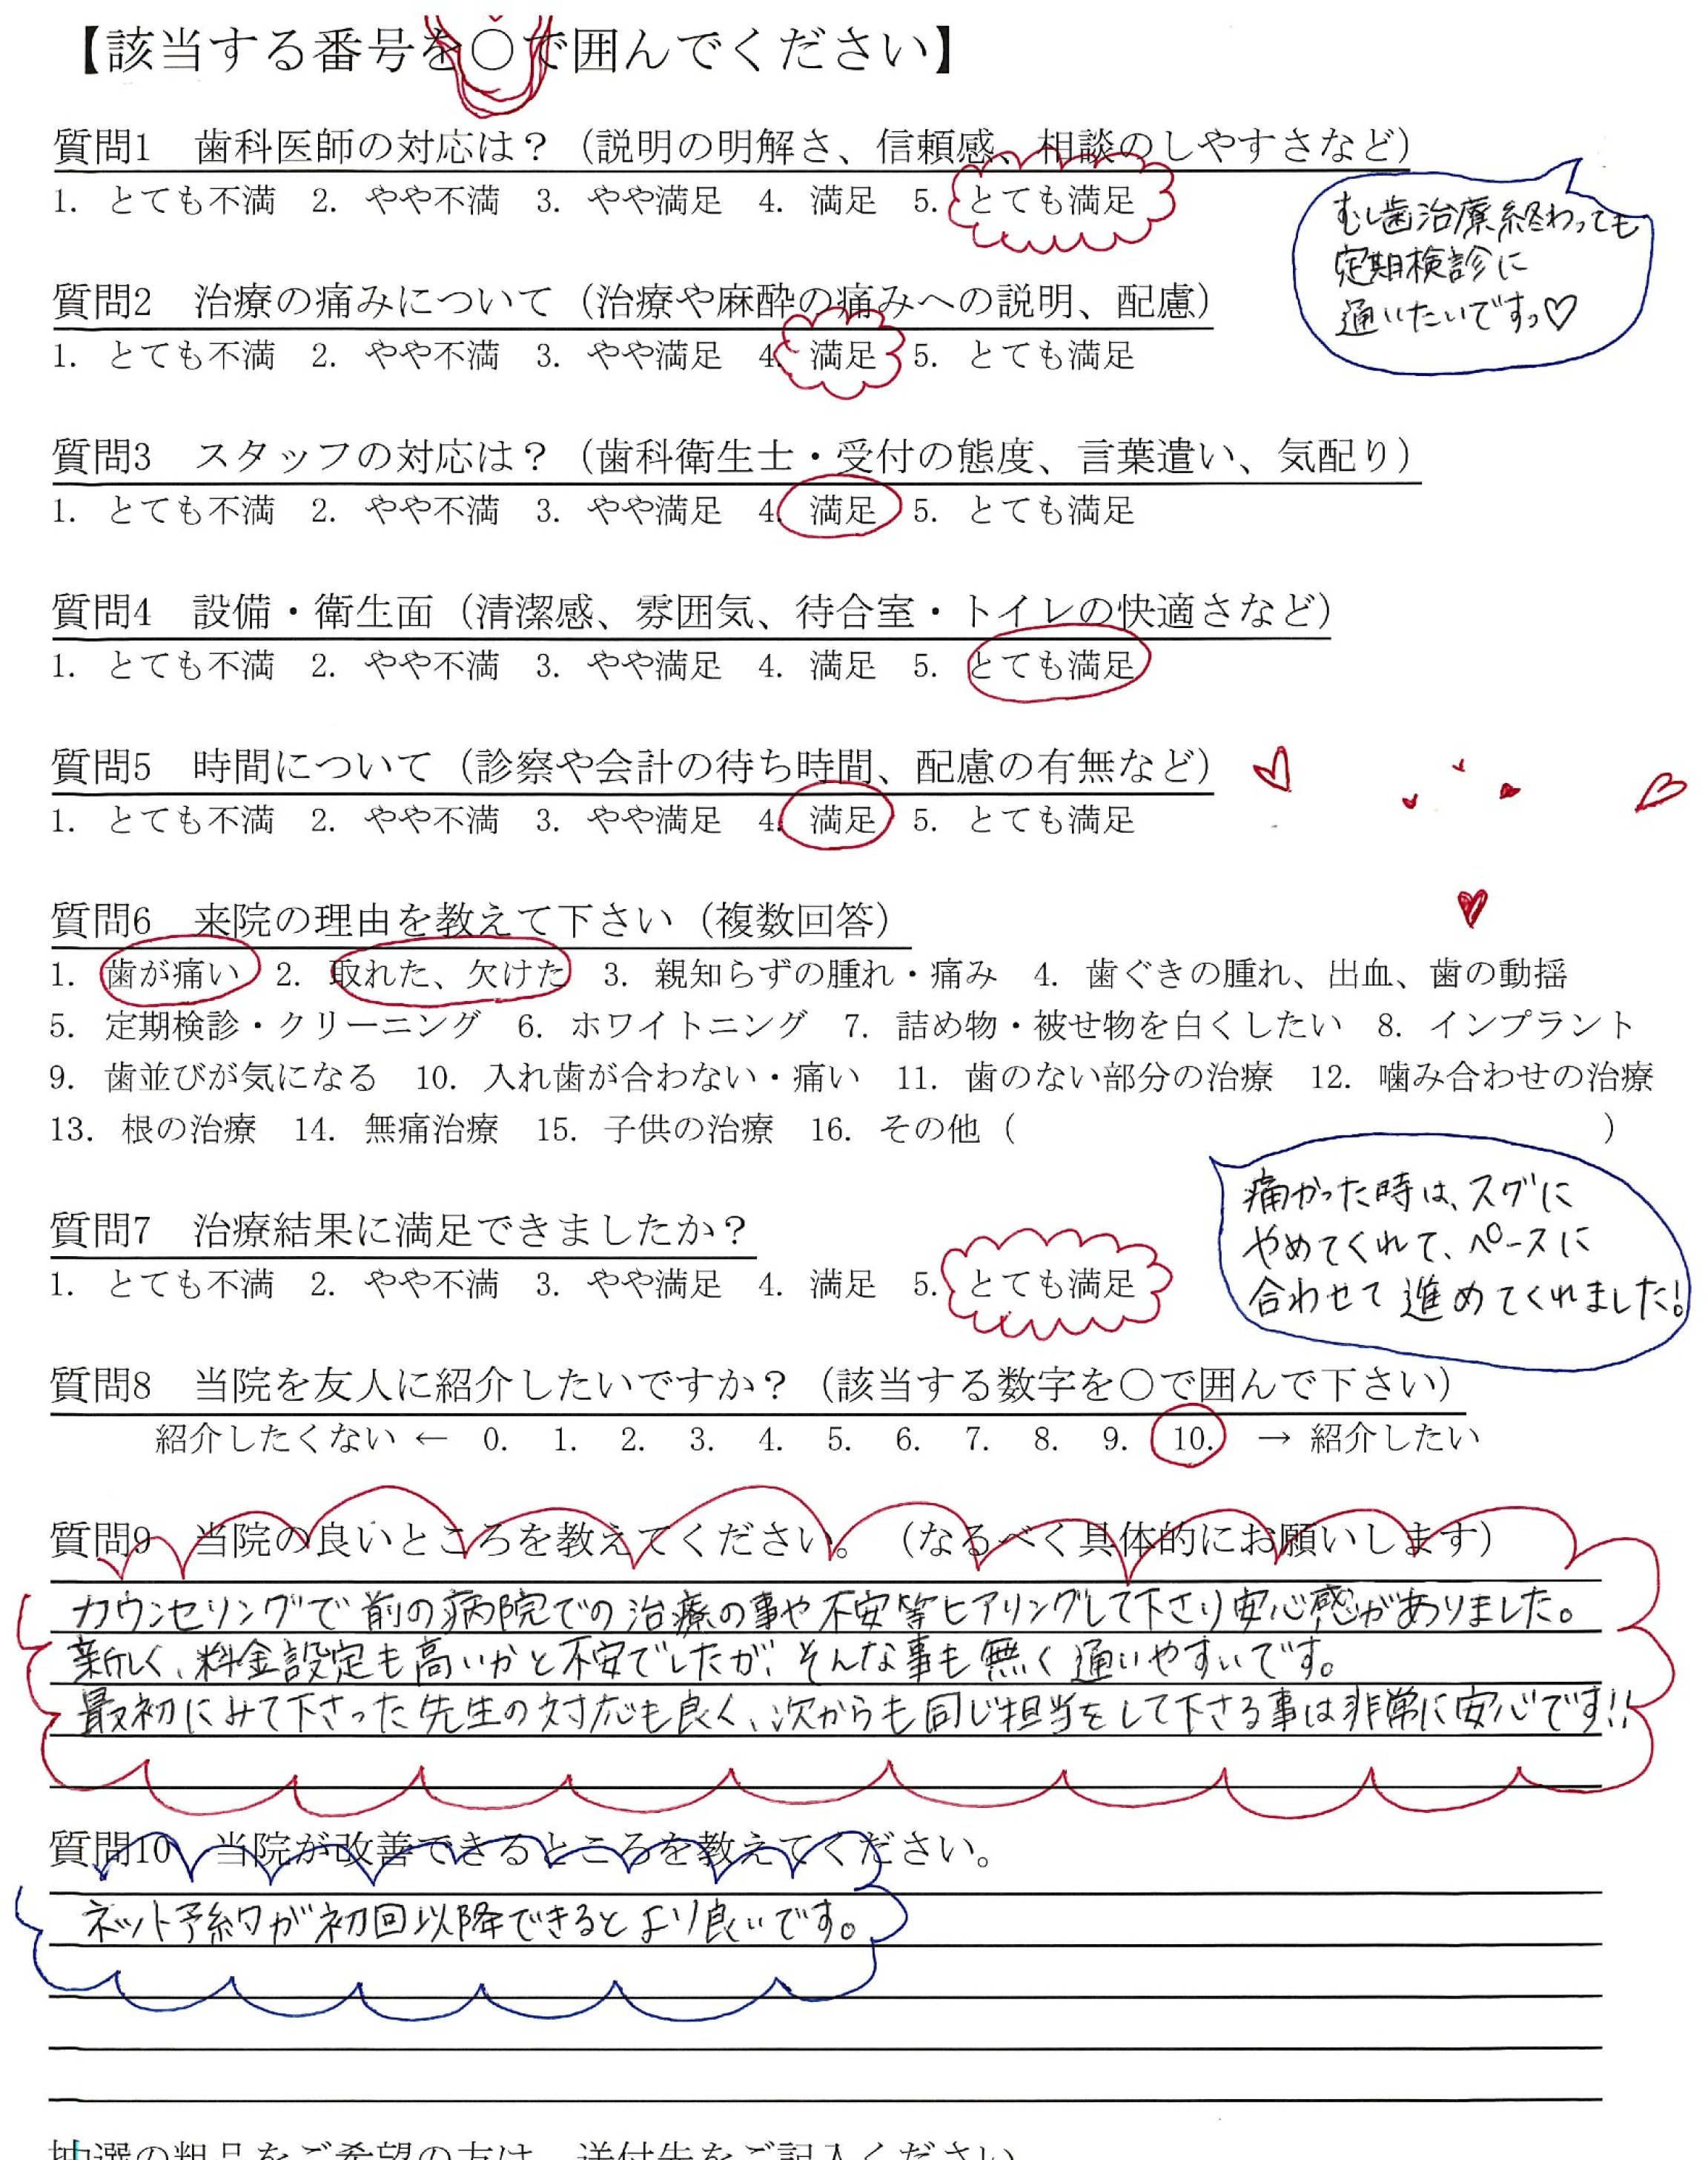 【該当する番号を○で囲んでください】
質問1　歯科医師の対応は？（説明の明解さ、信頼感、相談のしやすさなど）
1. とても不満　2. やや不満　3. やや満足　4. 満足　5. とても満足
むし歯治療終わっても
定期検診に
通いたいですっ♡
質問2　治療の痛みについて（治療や麻酔の痛みへの説明、配慮）
1. とても不満　2. やや不満　3. やや満足　4. 満足　5. とても満足
質問3　スタッフの対応は？（歯科衛生士・受付の態度、言葉遣い、気配り）
1. とても不満　2. やや不満　3. やや満足　4. 満足　5. とても満足
質問4　設備・衛生面（清潔感、雰囲気、待合室・トイレの快適さなど）
1. とても不満　2. やや不満　3. やや満足　4. 満足　5. とても満足
質問5　時間について（診察や会計の待ち時間、配慮の有無など）
1. とても不満　2. やや不満　3. やや満足　4. 満足　5. とても満足
質問6　来院の理由を教えて下さい（複数回答）
1. 歯が痛い　2. 取れた、欠けた　3. 親知らずの腫れ・痛み　4. 歯ぐきの腫れ、出血、歯の動揺
5. 定期検診・クリーニング　6. ホワイトニング　7. 詰め物・被せ物を白くしたい　8. インプラント
9. 歯並びが気になる　10. 入れ歯が合わない・痛い　11. 歯のない部分の治療　12. 噛み合わせの治療
13. 根の治療　14. 無痛治療　15. 子供の治療　16. その他（　　　）
質問7　治療結果に満足できましたか？
1. とても不満　2. やや不満　3. やや満足　4. 満足　5. とても満足
痛かった時は、スグに
やめてくれて、ペースに
合わせて進めてくれました!
質問8　当院を友人に紹介したいですか？（該当する数字を○で囲んで下さい）
紹介したくない ← 0. 1. 2. 3. 4. 5. 6. 7. 8. 9. 10. → 紹介したい
質問9　当院の良いところを教えてください。（なるべく具体的にお願いします）
カウンセリングで前の病院での治療の事や不安等ヒアリングして下さり安心感がありました。
新しく、料金設定も高いかと不安でしたが、そんな事も無く通いやすいです。
最初にみて下さった先生の対応も良く、次からも同じ担当をして下さる事は非常に安心です!!
質問10　当院が改善できるところを教えてください。
ネット予約が初回以降できるとより良いです。
抽選の粗品をご希望の方は、送付先をご記入ください